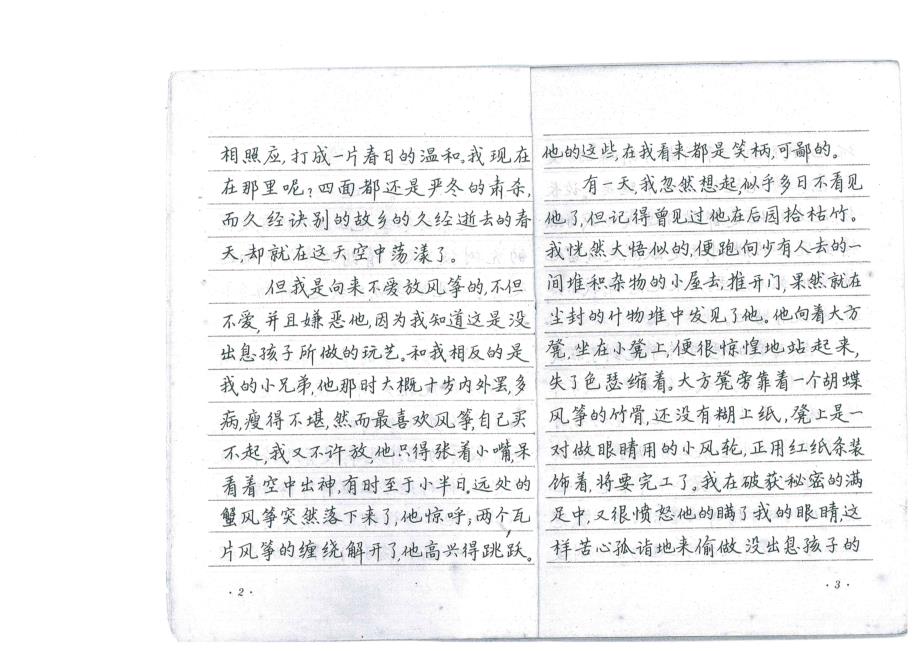 相照应,打成一片春日的温和。我现在
在那里呢?四面都还是严冬的肃杀,
而久经诀别的故乡的久经逝去的春
天,却就在这天空中荡漾了。
但我是向来不爱放风筝的,不但
不爱,并且嫌恶他,因为我知道这是没
出息孩子所做的玩艺。和我相反的是
我的小兄弟,他那时大概十岁内外罢,多
病,瘦得不堪,然而最喜欢风筝,自己买
不起,我又不许放,他只得张着小嘴,呆
看着空中出神,有时至于小半日。远处的
蟹风筝突然落下来了,他惊呼;两个瓦
片风筝的缠绕解开了,他高兴得跳跃。
·2·
他的这些,在我看来都是笑柄,可鄙的。
有一天,我忽然想起,似乎多日不看见
他了,但记得曾见过他在后园拾枯竹。
我恍然大悟似的,便跑向少有人去的一
间堆积杂物的小屋去,推开门,果然就在
尘封的什物堆中发见了他。他向着大方
凳,坐在小凳上,便很惊惶地站起来,
失了色瑟缩着。大方凳旁靠着一个胡蝶
风筝的竹骨,还没有糊上纸,凳上是一
对做眼睛用的小风轮,正用红纸条装
饰着,将要完工了。我在破获秘密的满
足中,又很愤怒他的瞒了我的眼睛,这
样苦心孤诣地来偷做没出息孩子的
·3·